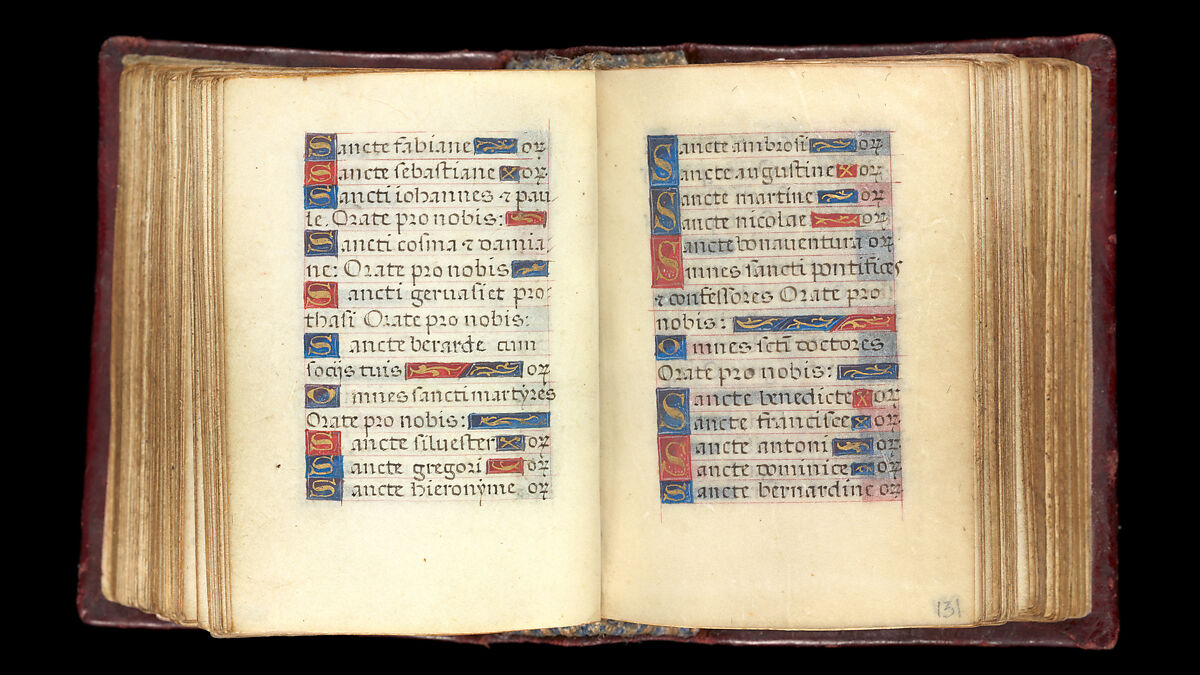 Sancte fabiane oꝝ
Sancte sebastiane oꝝ
Sancti iohannes ⁊ pau
le. Orate pro nobis:
Sancti cosma ⁊ damia
ne: Orate pro nobis
Sancti geruasi et pro
thasi Orate pro nobis:
Sancte berarde cum
socijs tuis oꝝ
Omnes sancti martyres
Orate pro nobis:
Sancte siluester oꝝ
Sancte gregori oꝝ
Sancte hieronyme oꝝ
Sancte ambrosi oꝝ
Sancte augustine oꝝ
Sancte martine oꝝ
Sancte nicolae oꝝ
Sancte bonauentura oꝝ
Omnes sancti pontifices
⁊ confessores Orate pro
nobis:
Omnes sctı̄ doctores
Orate pro nobis:
Sancte benedicte oꝝ
Sancte francisce oꝝ
Sancte antoni oꝝ
Sancte dominice oꝝ
Sancte bernardine oꝝ
131